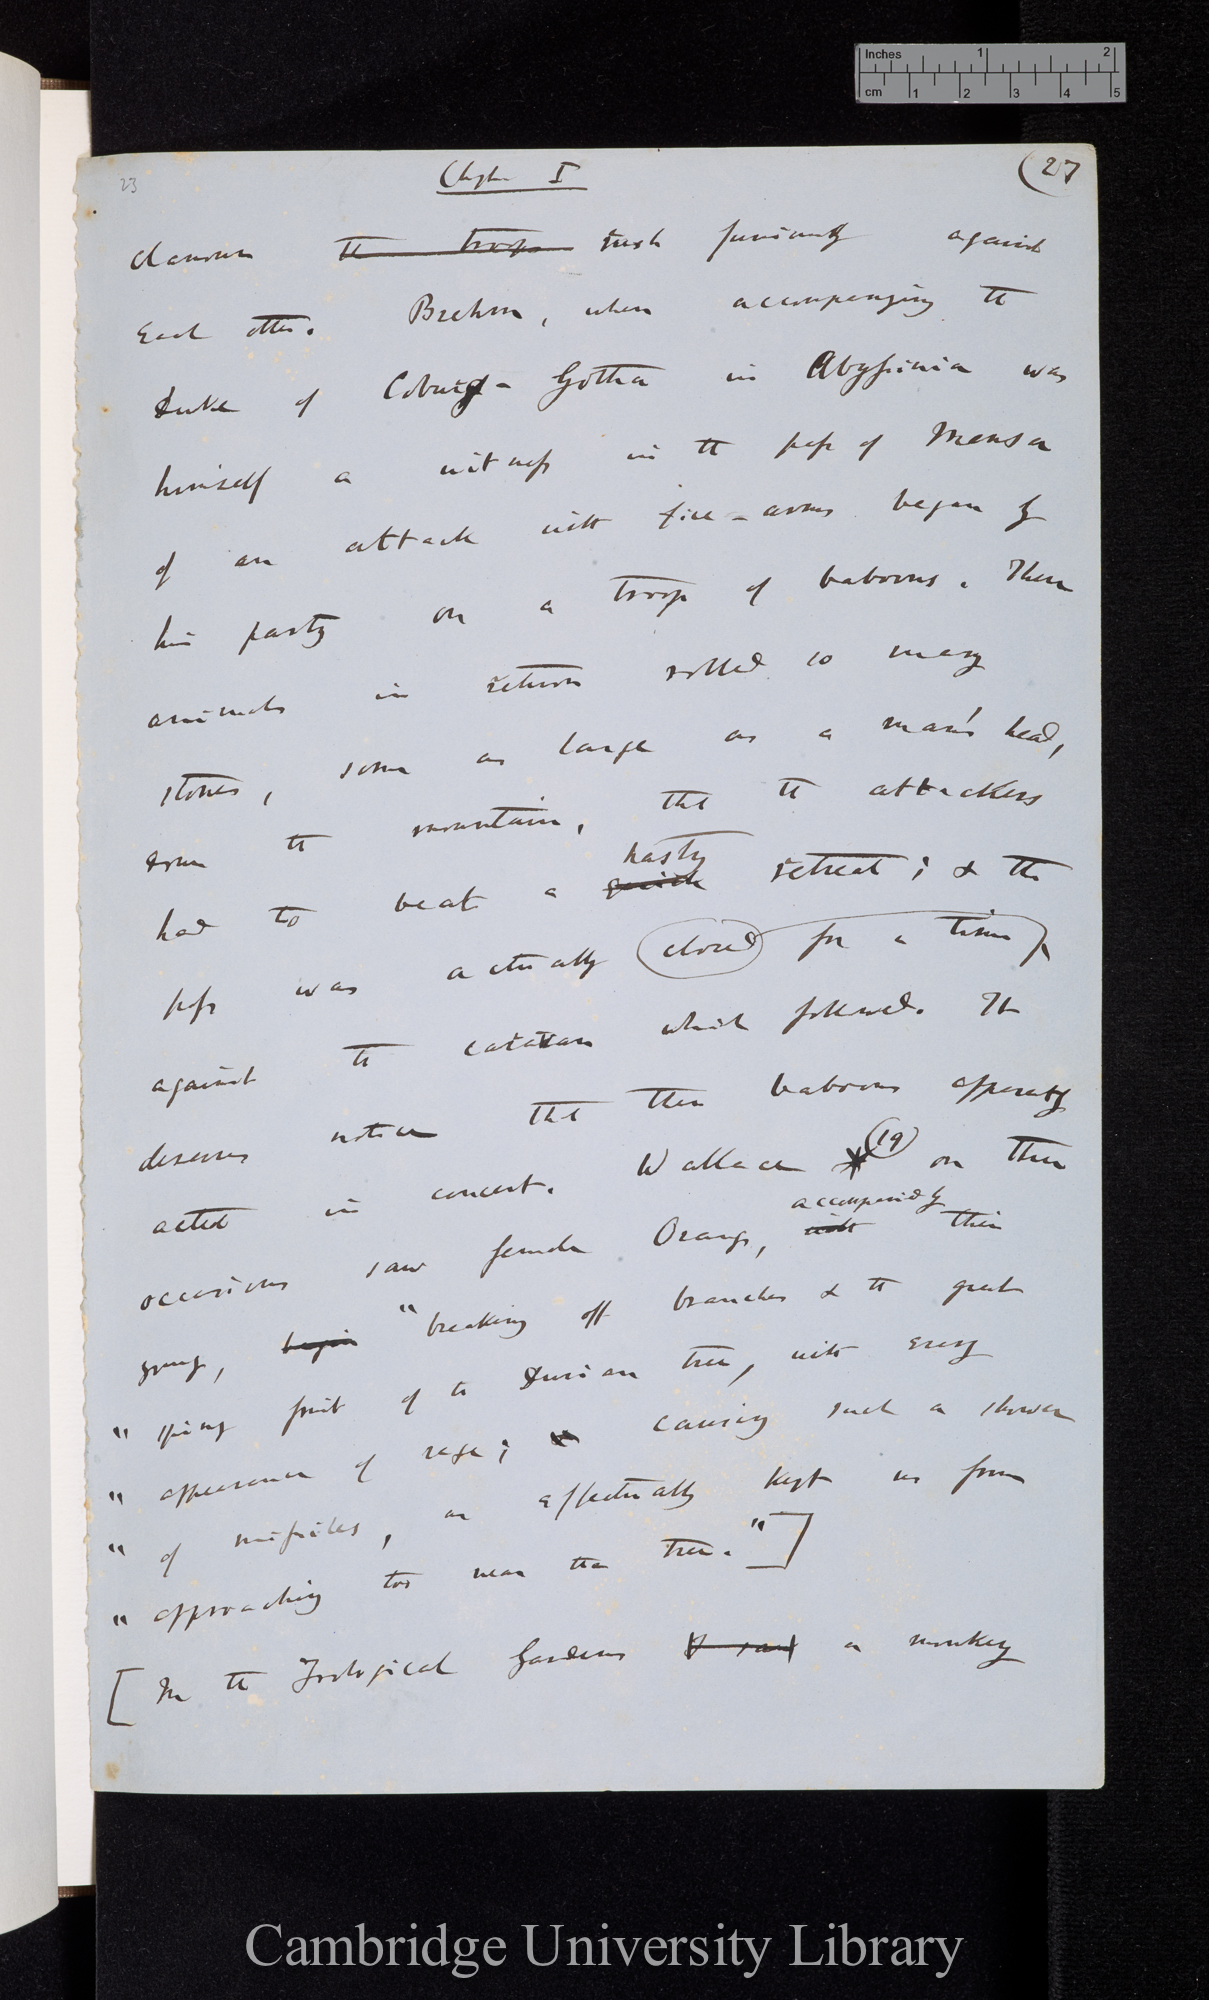 Inches 1 2
cm 1 2 3 4 5
23 Chapter I (27
clamour the troop rush furiously against
each other. Brehm, when accompanying the
Duke of Coburg-Gotha in Abyssinia was
himself a witness in the pass of Mensa
of an attack with fire-arms began by
his party on a troop of baboons. These
animals in return rolled so many
stones, some as large as a man's head,
down the mountain, that the attackers
hasty
had to beat a quick retreat; & the
pass was actually closed for a time
against the caravan which followed. It
deserves notice that these baboons apparently
acted in concert. Wallace (19) on three
accompanied by
occasions saw female Orangs, with their
young, begin "breaking off branches & the great
" spiny fruit of the Durian tree, with every
" appearance of rage; causing such a shower
" of missiles, as effectually kept us from
" approaching too near the tree."]
[In the Zoological Gardens I saw a monkey
Cambridge University Library